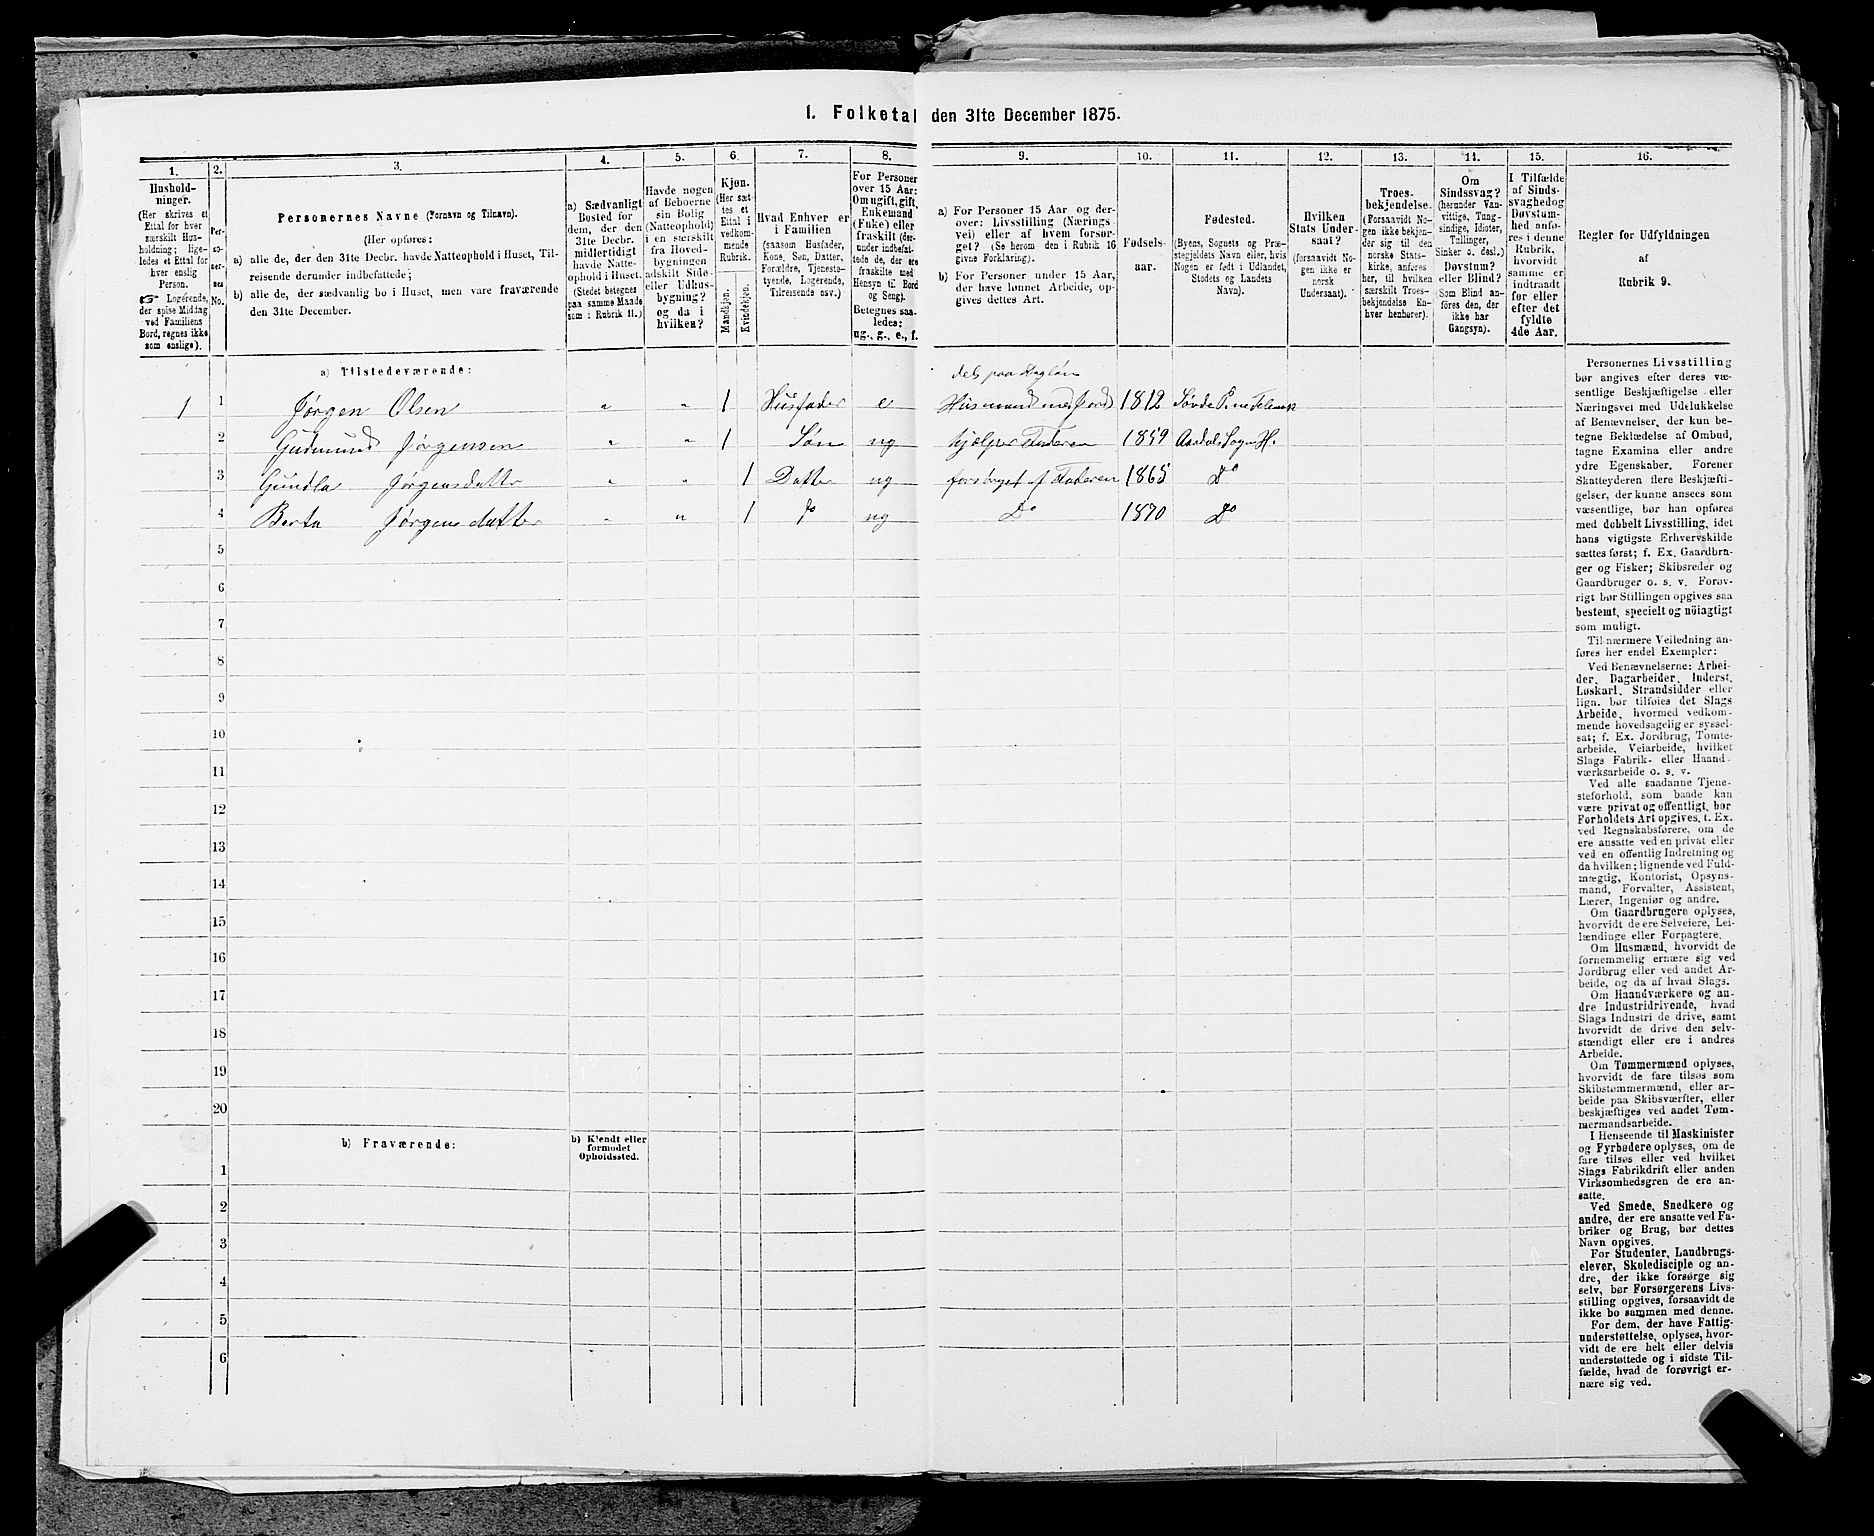 1. Folketal den 31te December 1875.
1.
Hushold-
ninger.
(Her skrives et
Ettal for hver
særskilt Hus-
holdning; lige-
ledes et Ettal for
hver enslig
Person.
☞ Logerende,
der spise Middag
ved Familiens
Bord, regnes ikke
som enslige).
2.
Per-
so-
ner-
nes
No.
3.
Personernes Navne (Fornavn og Tilnavn).
(Her opføres:
a) alle de, der den 31te Decbr. havde Natteophold i Huset, Til-
reisende derunder indbefattede;
b) alle de, der sædvanlig bo i Huset, men vare fraværende
den 31te December.
4.
a) Sædvanligt
Bosted for
dem, der den
31te Decbr.
midlertidigt
havde Natte-
ophold i Huset.
(Stedet betegnes
paa samme Maade
som i Rubrik 11.)
5.
Havde nogen
af Beboerne
sin Bolig
(Natteophold)
i en særskilt
fra Hoved-
bygningen
adskilt Side-
eller Udhus-
bygning?
og da i
hvilken?
6.
Kjøn.
(Her sæt-
tes et
Ettal i
vedkom-
mende
Rubrik.
Mandkjøn.
Kvindekjøn.
7.
Hvad Enhver er
i Familien
(saasom Husfader,
Kone, Søn, Datter,
Forældre, Tjenestе-
tyende, Logerende,
Tilreisende osv.)
8.
For Personer
over 15 Aar:
Om ugift, gift,
Enkemand
(Enke) eller
fraskilt (der-
under indbefat-
tede de, der ere
fraskilte med
Hensyn til Bord
og Seng).
Betegnes saa-
ledes:
ug., g., e., f.
9.
a) For Personer 15 Aar og der-
over: Livsstilling (Nærings-
vei) eller af hvem forsør-
get? (Se herom den i Rubrik 16
givne Forklaring).
b) For Personer under 15 Aar,
der have lønnet Arbeide, op-
gives dettes Art.
10.
Fødsels-
aar.
11.
Fødested.
(Byens, Sognets og Præ-
stegjeldets Navn eller, hvis
Nogen er født i Udlandet,
Stedets og Landets
Navn).
12.
Hvilken
Stats Under-
saat?
(forsaavidt No-
gen ikke er
norsk
Undersaat).
13.
Troes-
bekjendelse.
(Forsaavidt No-
gen ikke bekjen-
der sig til den
norske Stats-
kirke, anføres
her, til hvilken
særskilt Troes-
bekjendelse En-
hver henhører).
14.
Om
Sindssvag?
(herunder Van-
vittige, Tung-
sindige, Idioter,
Tullinger,
Sinker o. desl.)
Døvstum?
eller Blind?
(Som Blind an-
føres den, der
ikke har
Gangsyn).
15.
I Tilfælde
af Sinds-
svaghed og
Døvstum-
hed anfø-
res i denne
Rubrik,
hvorvidt
samme er
indtraadt
før eller
efter det
fyldte
4de Aar.
16.
Regler for Udfyldningen
af
Rubrik 9.
a) Tilstedeværende:
dels paa Dagløn
1 1 Jørgen Olsen „ „ 1 Husfader e Husmand med Jord 1812
2 Gudmund Jørgensen „ „ 1 Søn ug hjælper Faderen 1859 Aardals Sogn H.
3 Gundla Jørgensdatter „ „ 1 Datter ug forsørget af Faderen 1865 Do
4 Berta Jørgensdatter „ „ 1 Do ug Do 1870 Do
5
6
7
8
9
10
11
12
13
14
15
16
17
18
19
20
b) Fraværende:
b) Kjendt eller
formodet
Opholdssted.
1
2
3
4
5
6
Personernes Livsstilling
bør angives efter deres væ-
sentlige Beskjæftigelse eller
Næringsvei med Udelukkelse
af Benævnelser, der kun be-
tegne Beklædelse af Ombud,
tagne Examina eller andre
ydre Egenskaber. Forener
Skatteyderen flere Beskjæfti-
gelser, der kunne ansees som
væsentlige, bør han opføres
med dobbelt Livsstilling, idet
hans vigtigste Erhvervskilde
sættes først; f. Ex. Gaardbru-
ger og Fisker; Skibsreder og
Gaardbruger o. s. v. Forøv-
rigt bør Stillingen opgives saa
bestemt, specielt og nöiagtigt
som muligt.
Til nærmere Veiledning an-
føres her endel Exempler:
Ved Benævnelserne: Arbei-
der, Dagarbeider, Inderst,
Løskarl, Strandsidder eller
lign. bør tilføies det Slags
Arbeide, hvormed vedkom-
mende hovedsagelig er syssel-
sat; f. Ex. Jordbrug, Tomte-
arbeide, Veiarbeide, hvilket
Slags Fabrik- eller Haand-
værksarbeide o. s. v.
Ved alle saadanne Tjene-
steforhold, som baade kan
være privat og offentligt, bør
Forholdets Art opgives, f. Ex.
ved Regnskabsførere, om de
ere ansatte ved en privat eller
ved en offentlig Indretning og
da hvilken; lignende ved Fuld-
mægtig, Kontorist, Opsyns-
mand, Forvalter, Assistent,
Lærer, Ingeniør og andre.
Om Gaardbrugere oplyses,
hvorvidt de ere Selveiere, Lei-
lændinge eller Forpagtere.
Om Husmænd, hvorvidt de
fornemmelig ernære sig ved
Jordbrug eller ved andet Ar-
beide, og da af hvad Slags.
Om Haandværkere og an-
dre Industridrivende, hvad
Slags Industri de drive, samt
hvorvidt de drive den selv-
stændigt eller ere i andres
Arbeide.
Om Tømmermænd oplyses,
hvorvidt de fare tilsøs som
Skibstømmermænd, eller ar-
beide paa Skibsværfter, eller
beskjæftiges ved andet Tøm-
mermandsarbeide.
I Henseende til Maskinister
og Fyrbødere oplyses, om de
fare tilsøs eller ved hvilket
Slags Fabrikdrift eller anden
Virksomhedsgren de ere an-
satte.
Ved Smede, Snedkere og
andre, der ere ansatte ved Fa-
briker og Brug, bør dettes
Navn opgives.
For Studenter, Landbrugs-
elever, Skoledisciple og an-
dre, der ikke forsørge sig
selv, bør Forsørgerens Livs-
stilling opgives, forsaavidt de
ikke bo sammen med denne.
For dem, der have Fattig-
understøttelse, oplyses, hvor-
vidt de ere helt eller delvis
understøttede og i sidste Til-
fælde, hvad de forøvrigt er-
nære sig ved.